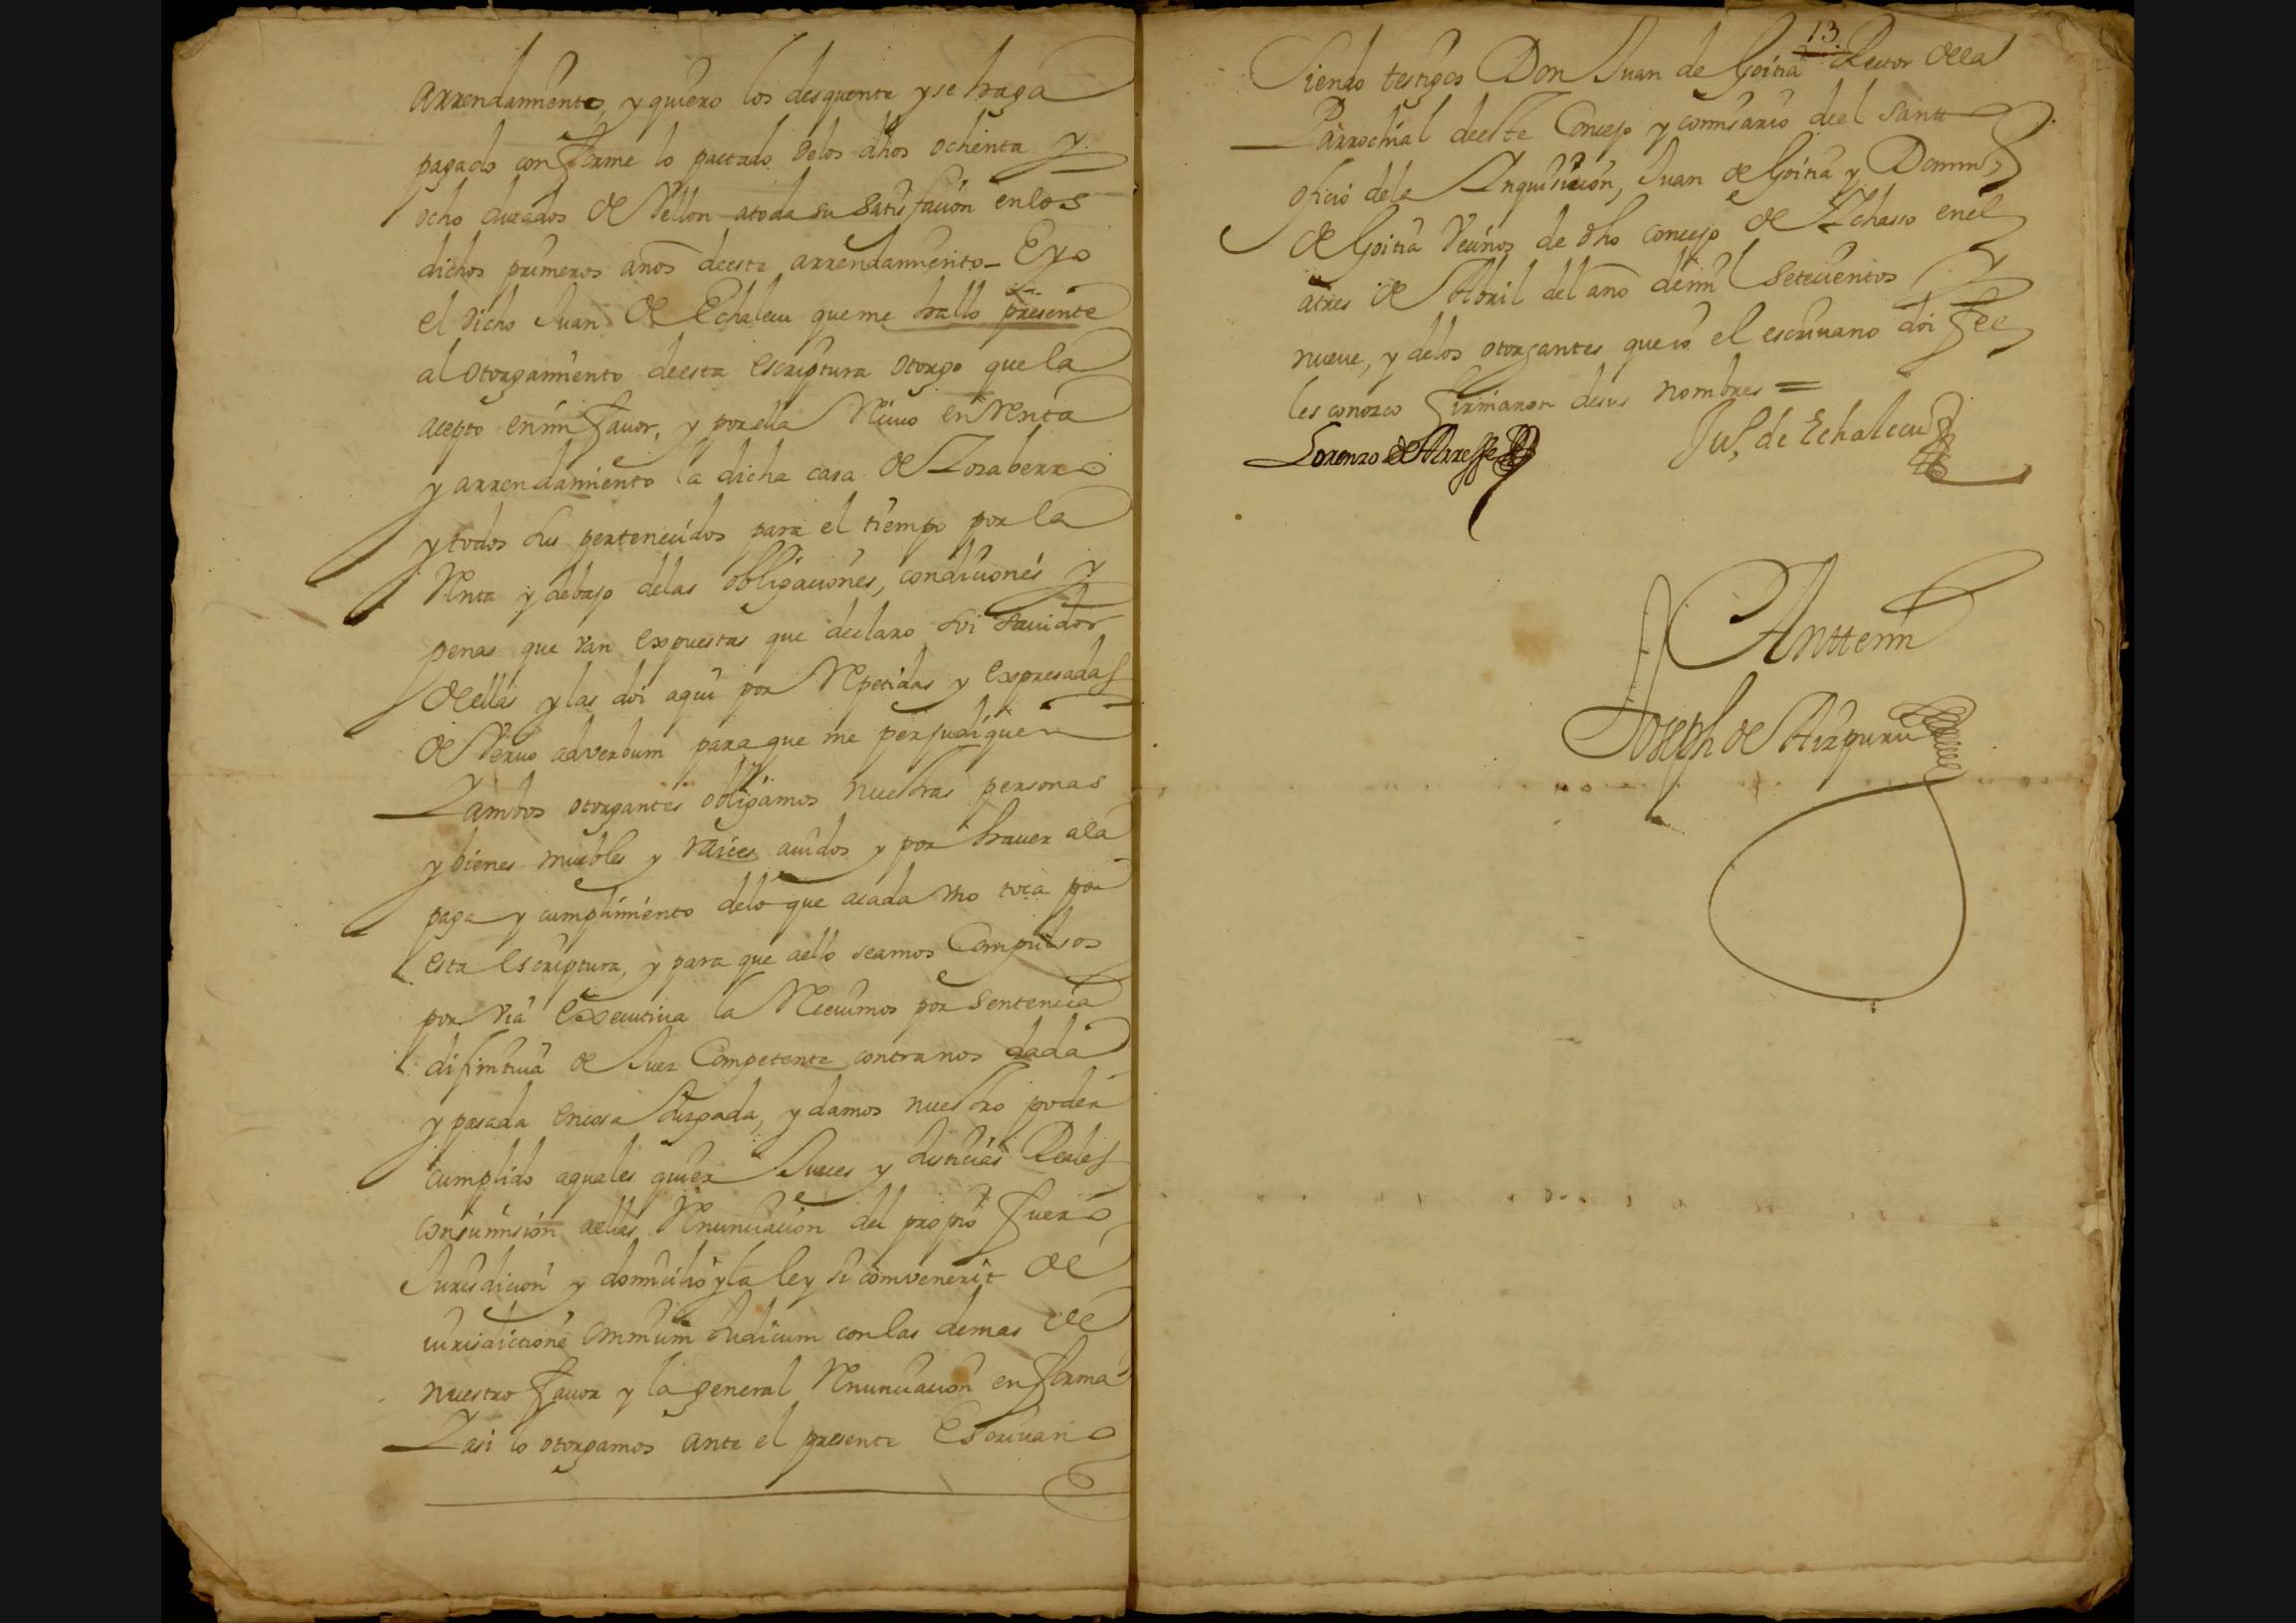 arrendamiento, y quiero los desquente y se haga
pagado conforme lo pactado de los dhos ochenta y
ocho ducados de Vellon a toda su satisfacion en los
dichos primeros años de esta arrendamiento - E yo
el dicho Juan de Echalecu que me hallo presente
al otorgamiento de esta escriptura otorgo que la
acepto en mi favor, y por ella Reciuo en Renta
y arrendamiento la dicha casa de Lozaberro
y todos sus pertenecidos para el tiempo por la
Renta y debajo de las obligaciones, condiciones y
penas que van expuestas que declaro soi sauidor
de ellas y las doi aqui por Repetidas y expresadas
de Veruo adverbum para que me perjudiquen
Y ambos otorgantes obligamos nuestras personas
y bienes muebles y raices auidos y por hauer a la
paga y cumplimiento de lo que a cada uno toca por
esta escriptura, y para que a ello seamos Compulsos
por via executiua la Receuimos por sentencia
difinitiua de Juez Competente contra nos dada
y pasada en cosa Juzgada, y damos nuestro poder
cumplido a quales quier Jueces y Justicias Reales
con sumision a ellas Renunciacion del propio fuero
Jurisdicion y domicilio y la ley si combenerit de
iurisdictione omnium Judicum con las demas de
nuestro favor y la general Renunciacion en forma
Y asi lo otorgamos ante el presente Escriuano
13.
Siendo testigos Don Juan de Goitia Rector de la
Parrochial de este Concejo y comisario de el santt
oficio de la Inquisicion, Juan de Goitia y Domin
de Goitia Vecinos de dho concejo de Ichasso en el
a tres de Abril del año de mil setecientos y
nueue, y de los otorgantes que io el escriuano doi fee
les conozco firmaron de sus nombres =
Lorenzo de Arrese Juº de Echalecu
Antte mi
Joseph de Aizpuru